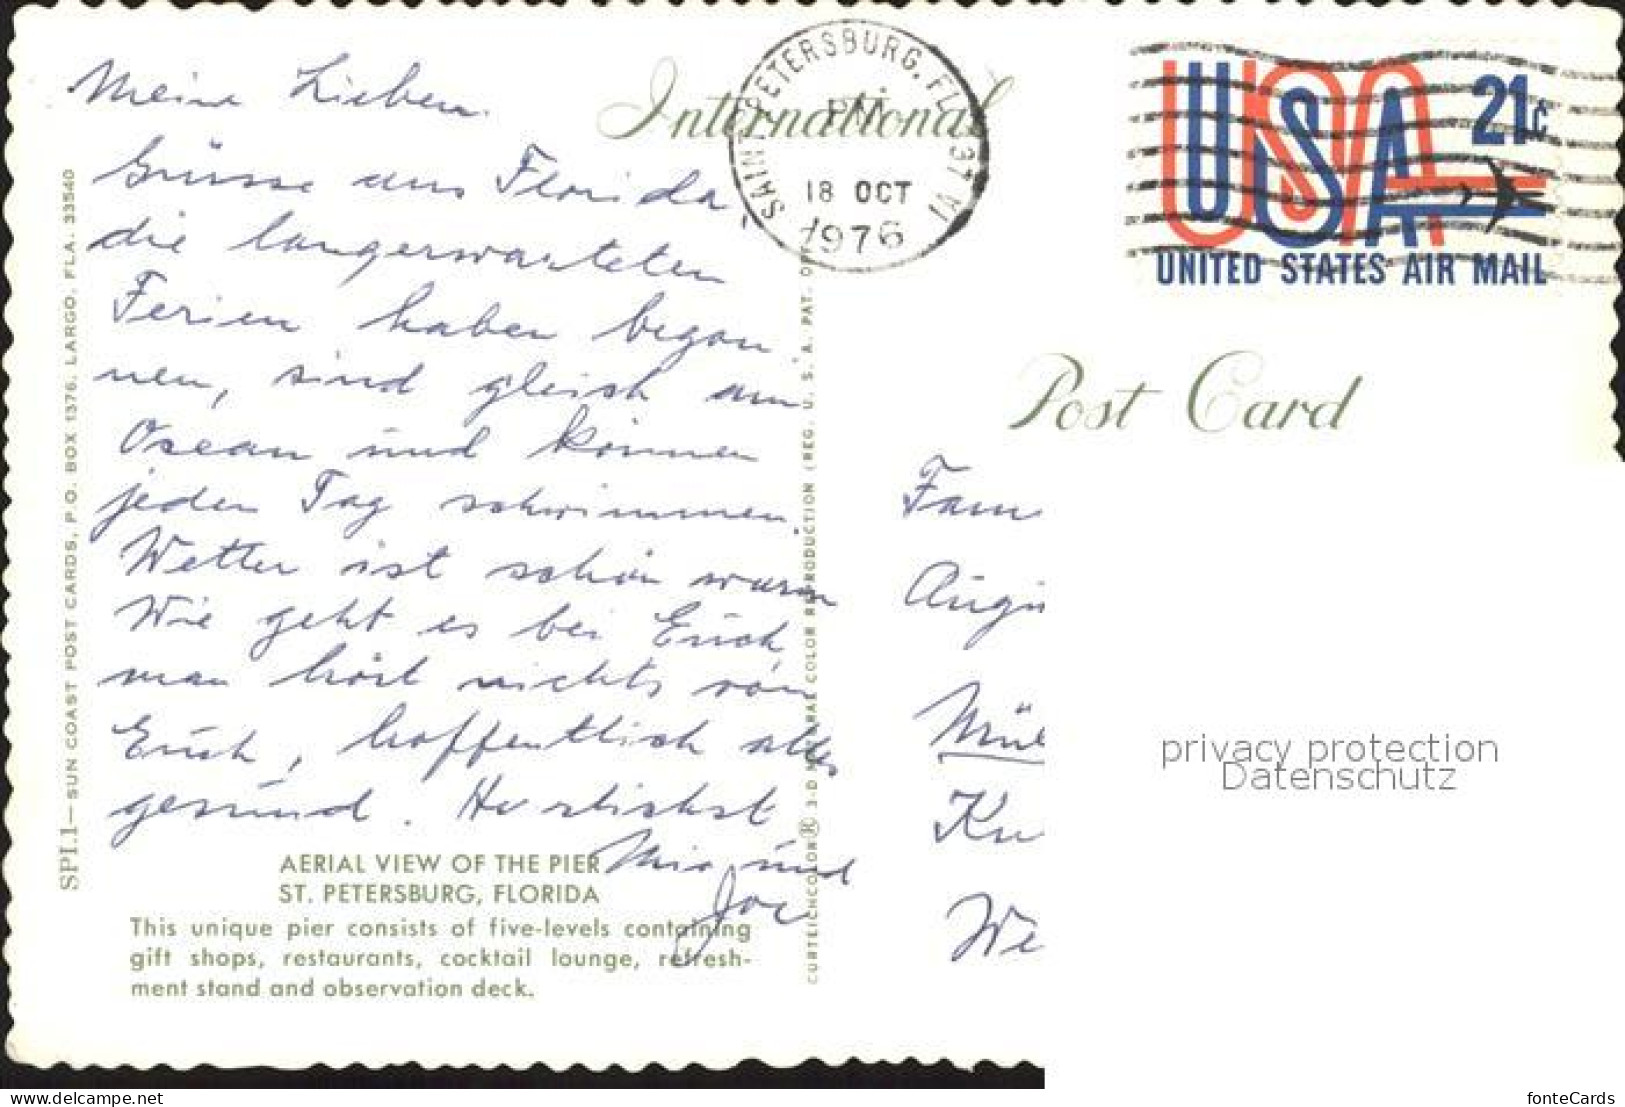 International
SAINT PETERSBURG, FL 337 1A
PM
18 OCT
1976
USA 21c
UNITED STATES AIR MAIL
Post Card
Meine Lieben
Grüsse aus Florida
die langerwarteten
Ferien haben began
nen, sind gleich am
Osean und können
jeden Tag schwimmen.
Wetter ist schön warm
Wie geht es bei Euch
man hört nichts von
Euch, hoffentlich alles
gesund. Herzlichst
und
Joe
Fam
Augu
Mül
We
privacy protection
Datenschutz
AERIAL VIEW OF THE PIER
ST. PETERSBURG, FLORIDA
This unique pier consists of five-levels containing
gift shops, restaurants, cocktail lounge, refresh-
ment stand and observation deck.
SPI.1—SUN COAST POST CARDS, P.O. BOX 1376, LARGO, FLA. 33540
CURTEICHCOLOR® 3-D NATURAL COLOR REPRODUCTION (REG. U. S. A. PAT. OFF
www.delcampe.net
fonteCards